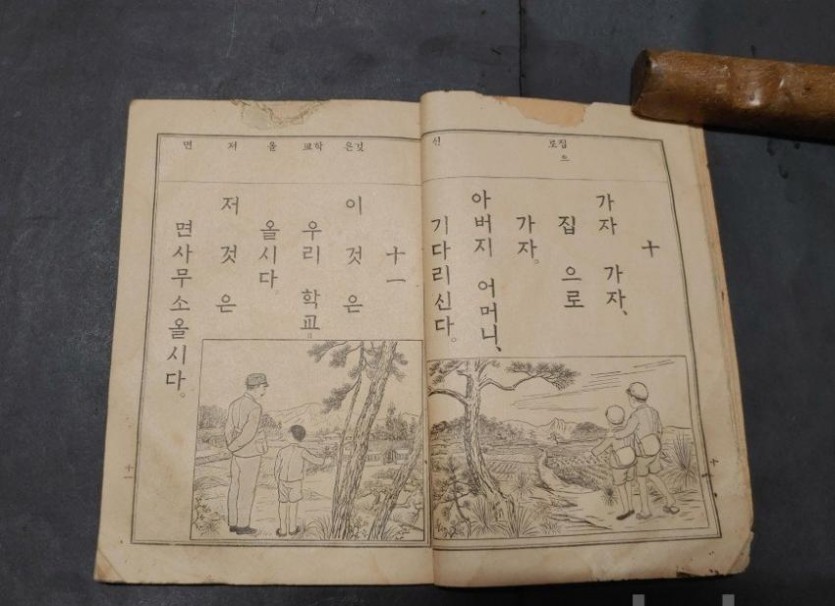 로집
으
十
가자 가자,
집 으로
가자。
아버지 어머니、
기다리신다。
신
十
은것
교학
올
저
면
十一
이 것 은
우리 학교。
올시다。
저 것 은
면사무소올시다。
十一